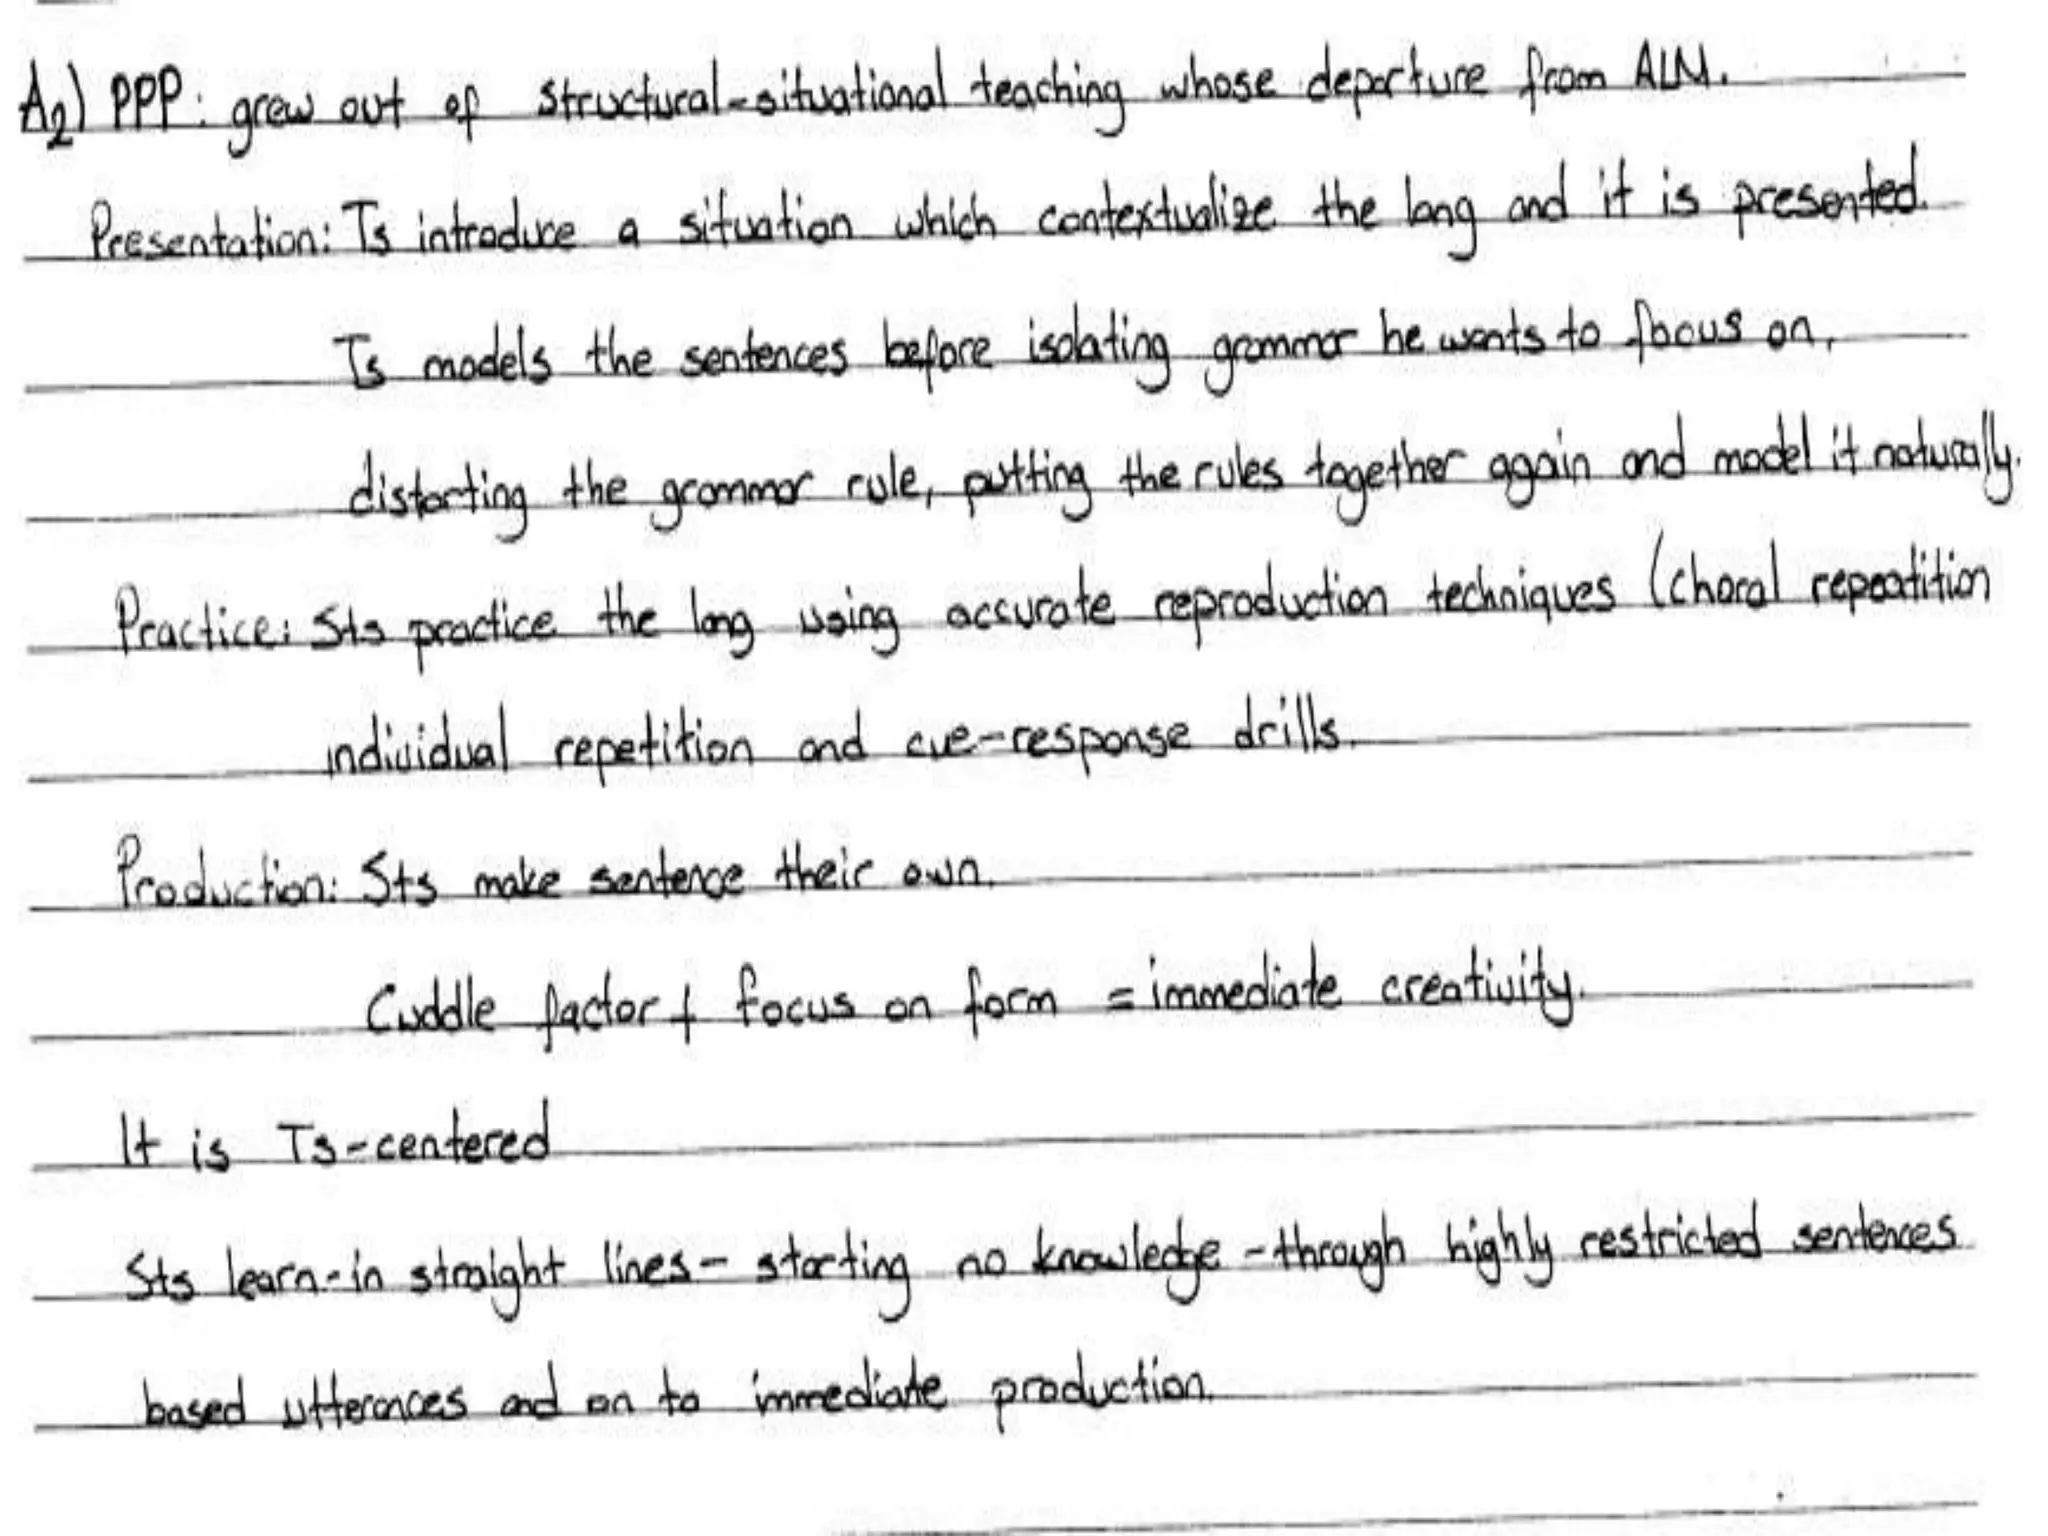 A2) PPP: grew out of structural-situational teaching whose departure from ALM.
Presentation: Ts introduce a situation which contextualize the lang and it is presented.
Ts models the sentences before isolating grammar he wants to focus on,
distorting the grammar rule, putting the rules together again and model it naturally.
Practice: Sts practice the lang using accurate reproduction techniques (choral repeatition
individual repetition and cue-response drills.
Production: Sts make sentence their own.
Cuddle factor + focus on form = immediate creativity.
It is Ts-centered
Sts learn-in straight lines- starting no knowledge -through highly restricted sentences
based utterances and on to immediate production.